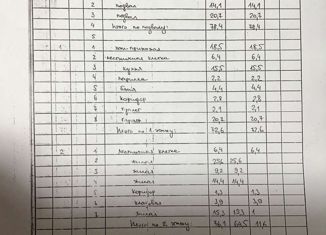 2 подвал 14,1 14,1
3 подвал 20,7 20,7
Итого по подвалу: 78,4 78,4
1 1 18,5 18,5
2 лестничная клетка 6,4 6,4
3 кухня 15,5 15,5
4 2,2 2,2
5 баня 4,4 4,4
6 коридор 2,8 2,8
7 туалет 2,1 2,1
8 гараж 20,7 20,7
Итого по 1 этажу: 72,6 72,6
2 1 лестничная клетка 6,4 6,4
2 жилая 25,6 25,6
3 жилая 9,2 9,2
4 жилая 14,4 14,4
5 коридор 1,3 1,3
6 кладовая 3,9 3,9
жилая 15,3
Итого по 2 этажу